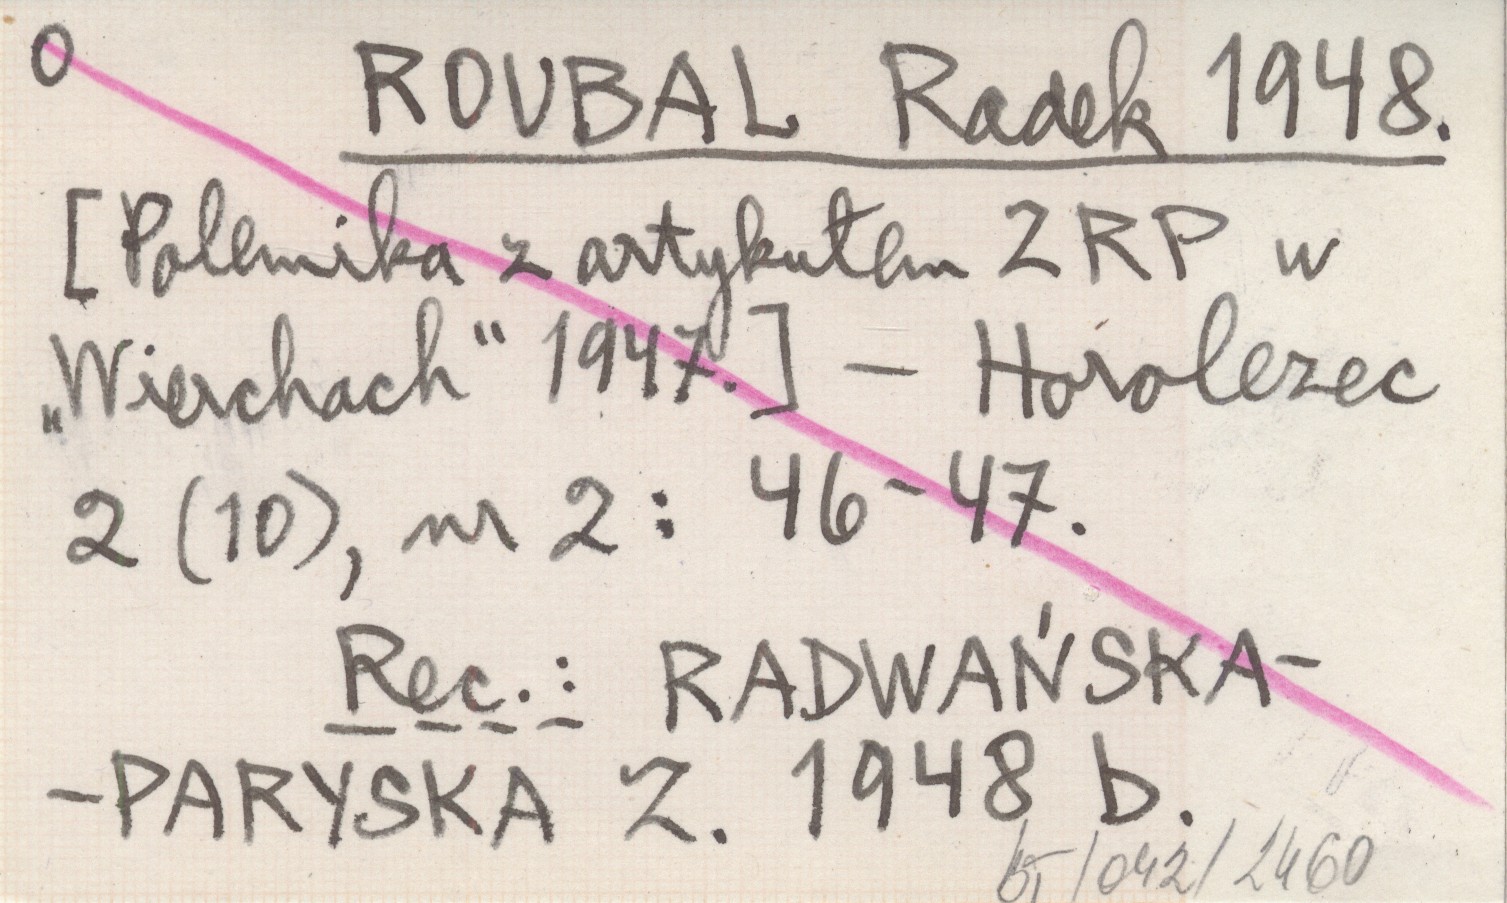 O ROUBAL Radek 1948.
[Polemika z artykułem ZRP w
„Wierchach“ 1947.] — Horolezec
2 (10), nr 2: 46-47.
Rec.: RADWAŃSKA-
-PARYSKA Z. 1948 b.
/042/2460